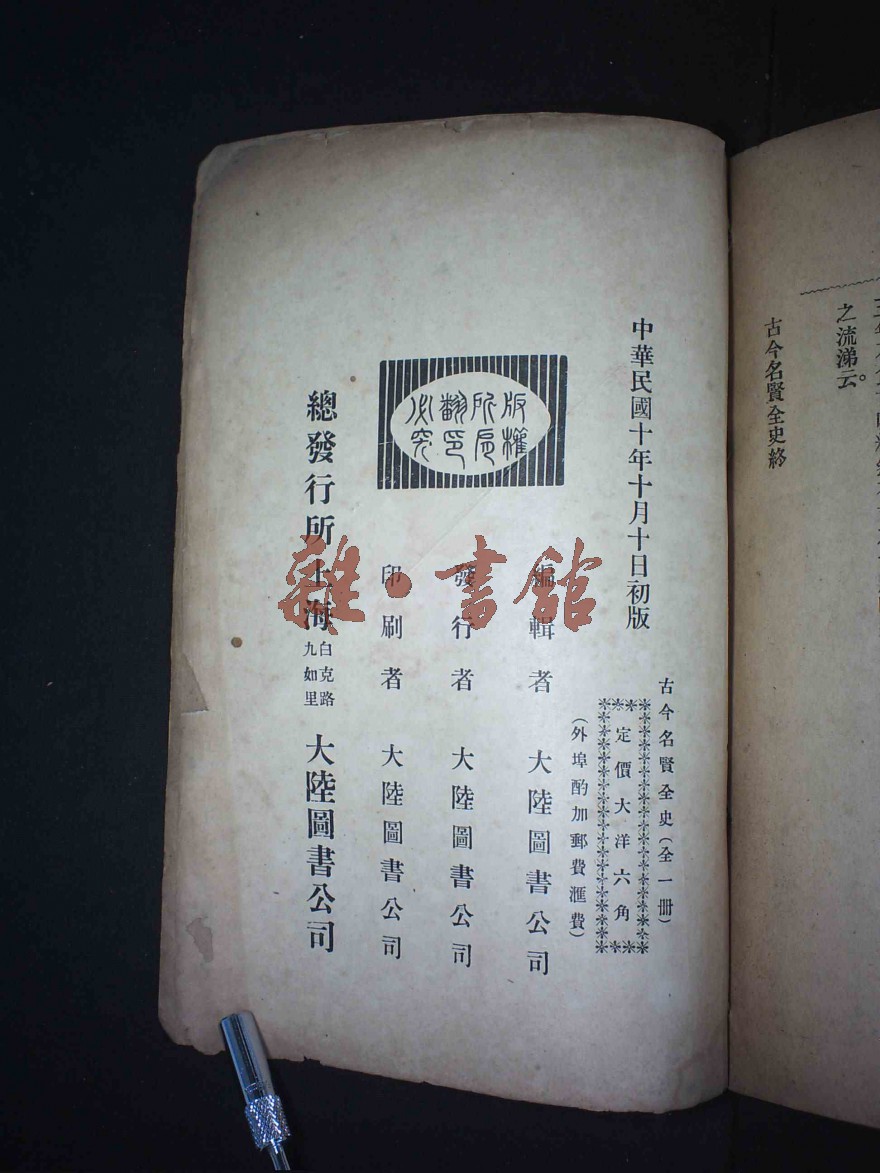 之流涕云。
古今名賢全史終
中華民國十年十月十日初版
古今名賢全史（全一冊）
定價大洋六角
（外埠酌加郵費滙費）
版權
所有
翻印
必究
編輯者 大陸圖書公司
發行者 大陸圖書公司
印刷者 大陸圖書公司
總發行所上海白克路九如里 大陸圖書公司
雜·書館